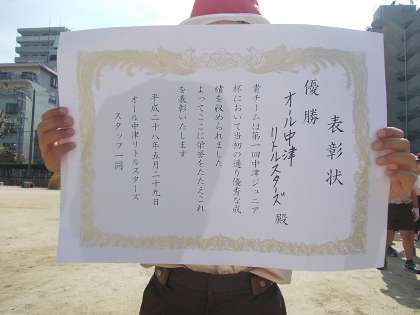 表彰状
優勝
オール中津
リトルスターズ 殿
貴チームは第一回中津ジュニア
杯において当初の通り優秀な成
績を収められました
よってここに栄誉をたたえこれ
を表彰いたします
平成二十八年五月二十九日
オール中津リトルスターズ
スタッフ一同